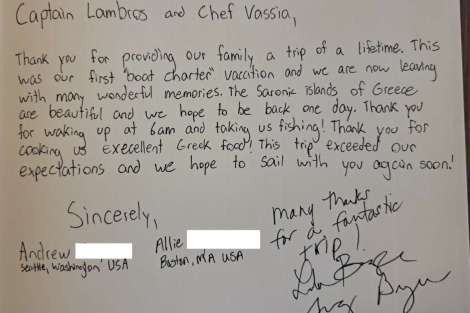 Captain Lambros and Chef Vassia,
Thank you for providing our family a trip of a lifetime. This
was our first "boat charter" vacation and we are now leaving
with many wonderful memories. The Saronic islands of Greece
are beautiful and we hope to be back one day. Thank you
for waking up at 6am and taking us fishing! Thank you for
cooking us execellent Greek food! This trip exceeded our
expectations and we hope to sail with you again soon!
Sincerely,
Andrew
Seattle, Washington USA
Allie
Boston, MA USA
many thanks
for a fantastic
trip!